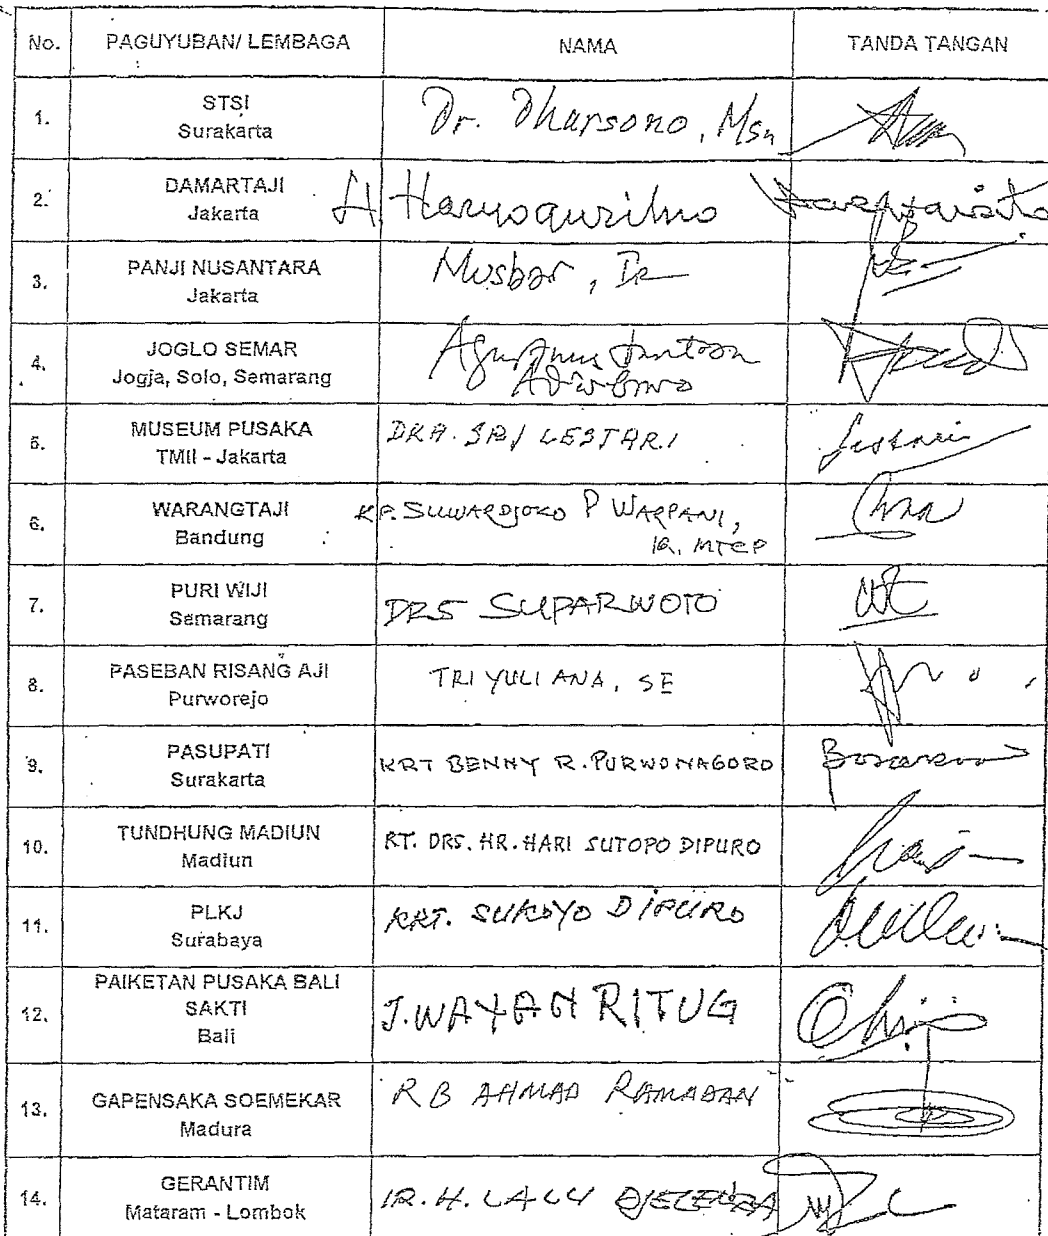 No. PAGUYUBAN/ LEMBAGA NAMA TANDA TANGAN
1. STSI
Surakarta
Dr. Dharsono, Msn
2. DAMARTAJI
Jakarta
H. Haryoguritno
3. PANJI NUSANTARA
Jakarta
Musbar, Ir
4. JOGLO SEMAR
Jogja, Solo, Semarang
5. MUSEUM PUSAKA
TMII - Jakarta
DRA. SRI LESTARI
Lestari
6. WARANGTAJI
Bandung
KP. SUWARDJOKO P WARPANI,
IR, MTCP
7. PURI WIJI
Semarang
DRS SUPARWOTO
8. PASEBAN RISANG AJI
Purworejo
TRI YULIANA, SE
9. PASUPATI
Surakarta
KRT BENNY R. PURWONAGORO
10. TUNDHUNG MADIUN
Madiun
RT. DRS. HR. HARI SUTOPO DIPURO
11. PLKJ
Surabaya
KRT. SUKOYO DIPURO
12. PAIKETAN PUSAKA BALI
SAKTI
Bali
I. WAYAN RITUG
13. GAPENSAKA SOEMEKAR
Madura
R B AHMAD RAMADAN
14. GERANTIM
Mataram - Lombok
IR. H. LALU